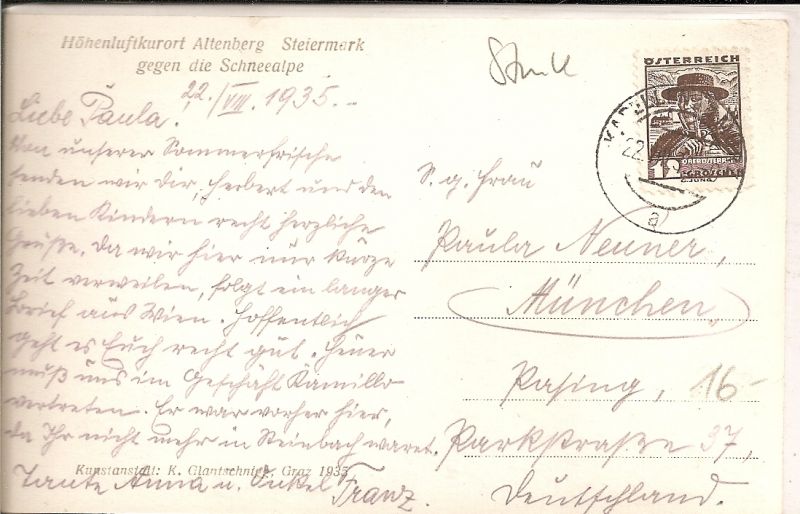 Höhenluftkurort Altenberg Steiermark
gegen die Schneealpe
22./VIII. 1935.
Liebe Paula.
Von unserer Sommerfrische
senden wir dir, Herbert und den
lieben Kindern recht herzliche
Grüße. Da wir hier nur kurze
Zeit verweilen, folgt ein langer
Brief aus Wien. Hoffentlich
geht es Euch recht gut. Heuer
muß uns im Geschäft Kamillo
vertreten. Er war vorher hier,
da Ihr nicht mehr in Steinbach waret.
Kunstanstalt: K. Glantschnigg, Graz 1935
Tante Anna u. Onkel Franz.
ÖSTERREICH
OBERÖSTERR.
GROSCHEN
22.
a
S. g. Frau
Paula Neuner,
München,
Pasing, 16-
Parkstraße 37,
Deutschland.